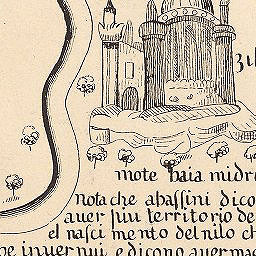 mote haia midr
nota che abassini dico
auer piu territorio de
el nascimento del nilo ch
inuer nui e dicono auer mag